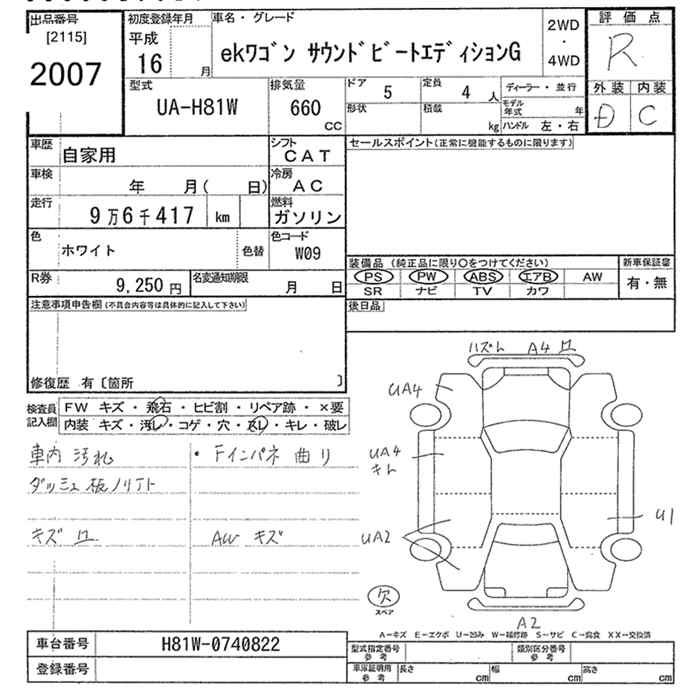 出品番号
[2115]
2007
初度登録年月
平成
16 月
車名・グレード
ekワゴン サウンドビートエディションG
2WD
・
4WD
評価点
R
外装 内装
D C
型式
UA-H81W
排気量
660
CC
ドア 5
定員 4 人
形状
積載 kg
ディーラー・並行
モデル年式 年
ハンドル 左・右
車歴 自家用
シフト CAT
車検 年 月( 日)
冷房 AC
走行 9万6千417 km
燃料 ガソリン
色 ホワイト 色替
色コード W09
R券 9,250円
名変通知期限 月 日
セールスポイント(正常に機能するものに限ります)
装備品 (純正品に限り○をつけてください)
PS PW ABS エアB AW
SR ナビ TV カワ
新車保証書
有・無
後日品
注意事項申告欄(不具合内容等は具体的に記入して下さい)
修復歴 有〔箇所 〕
検査員記入欄
FW キズ・飛石・ヒビ割・リペア跡・×要
内装 キズ・汚レ・コゲ・穴・スレ・キレ・破レ
車内 汚れ
・Fインパネ 曲り
ダッシュ板ノリアト
キズ
AW キズ
A4
UA4
UA4
キト
UA2
U1
欠
スペア
A2
A-キズ E-エクボ U-凹み W-補修跡 S-サビ C-腐食 XX-交換済
車台番号 H81W-0740822
登録番号
型式指定番号 参考
類別区分番号 参考
車庫証明用 参考
長さ cm 幅 cm 高さ cm